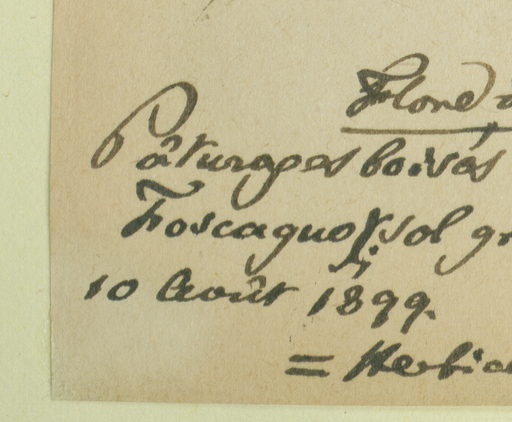 Flore d
Pâturages boisés
Foscagno; sol gr
10 Août 1899.
= Herbie